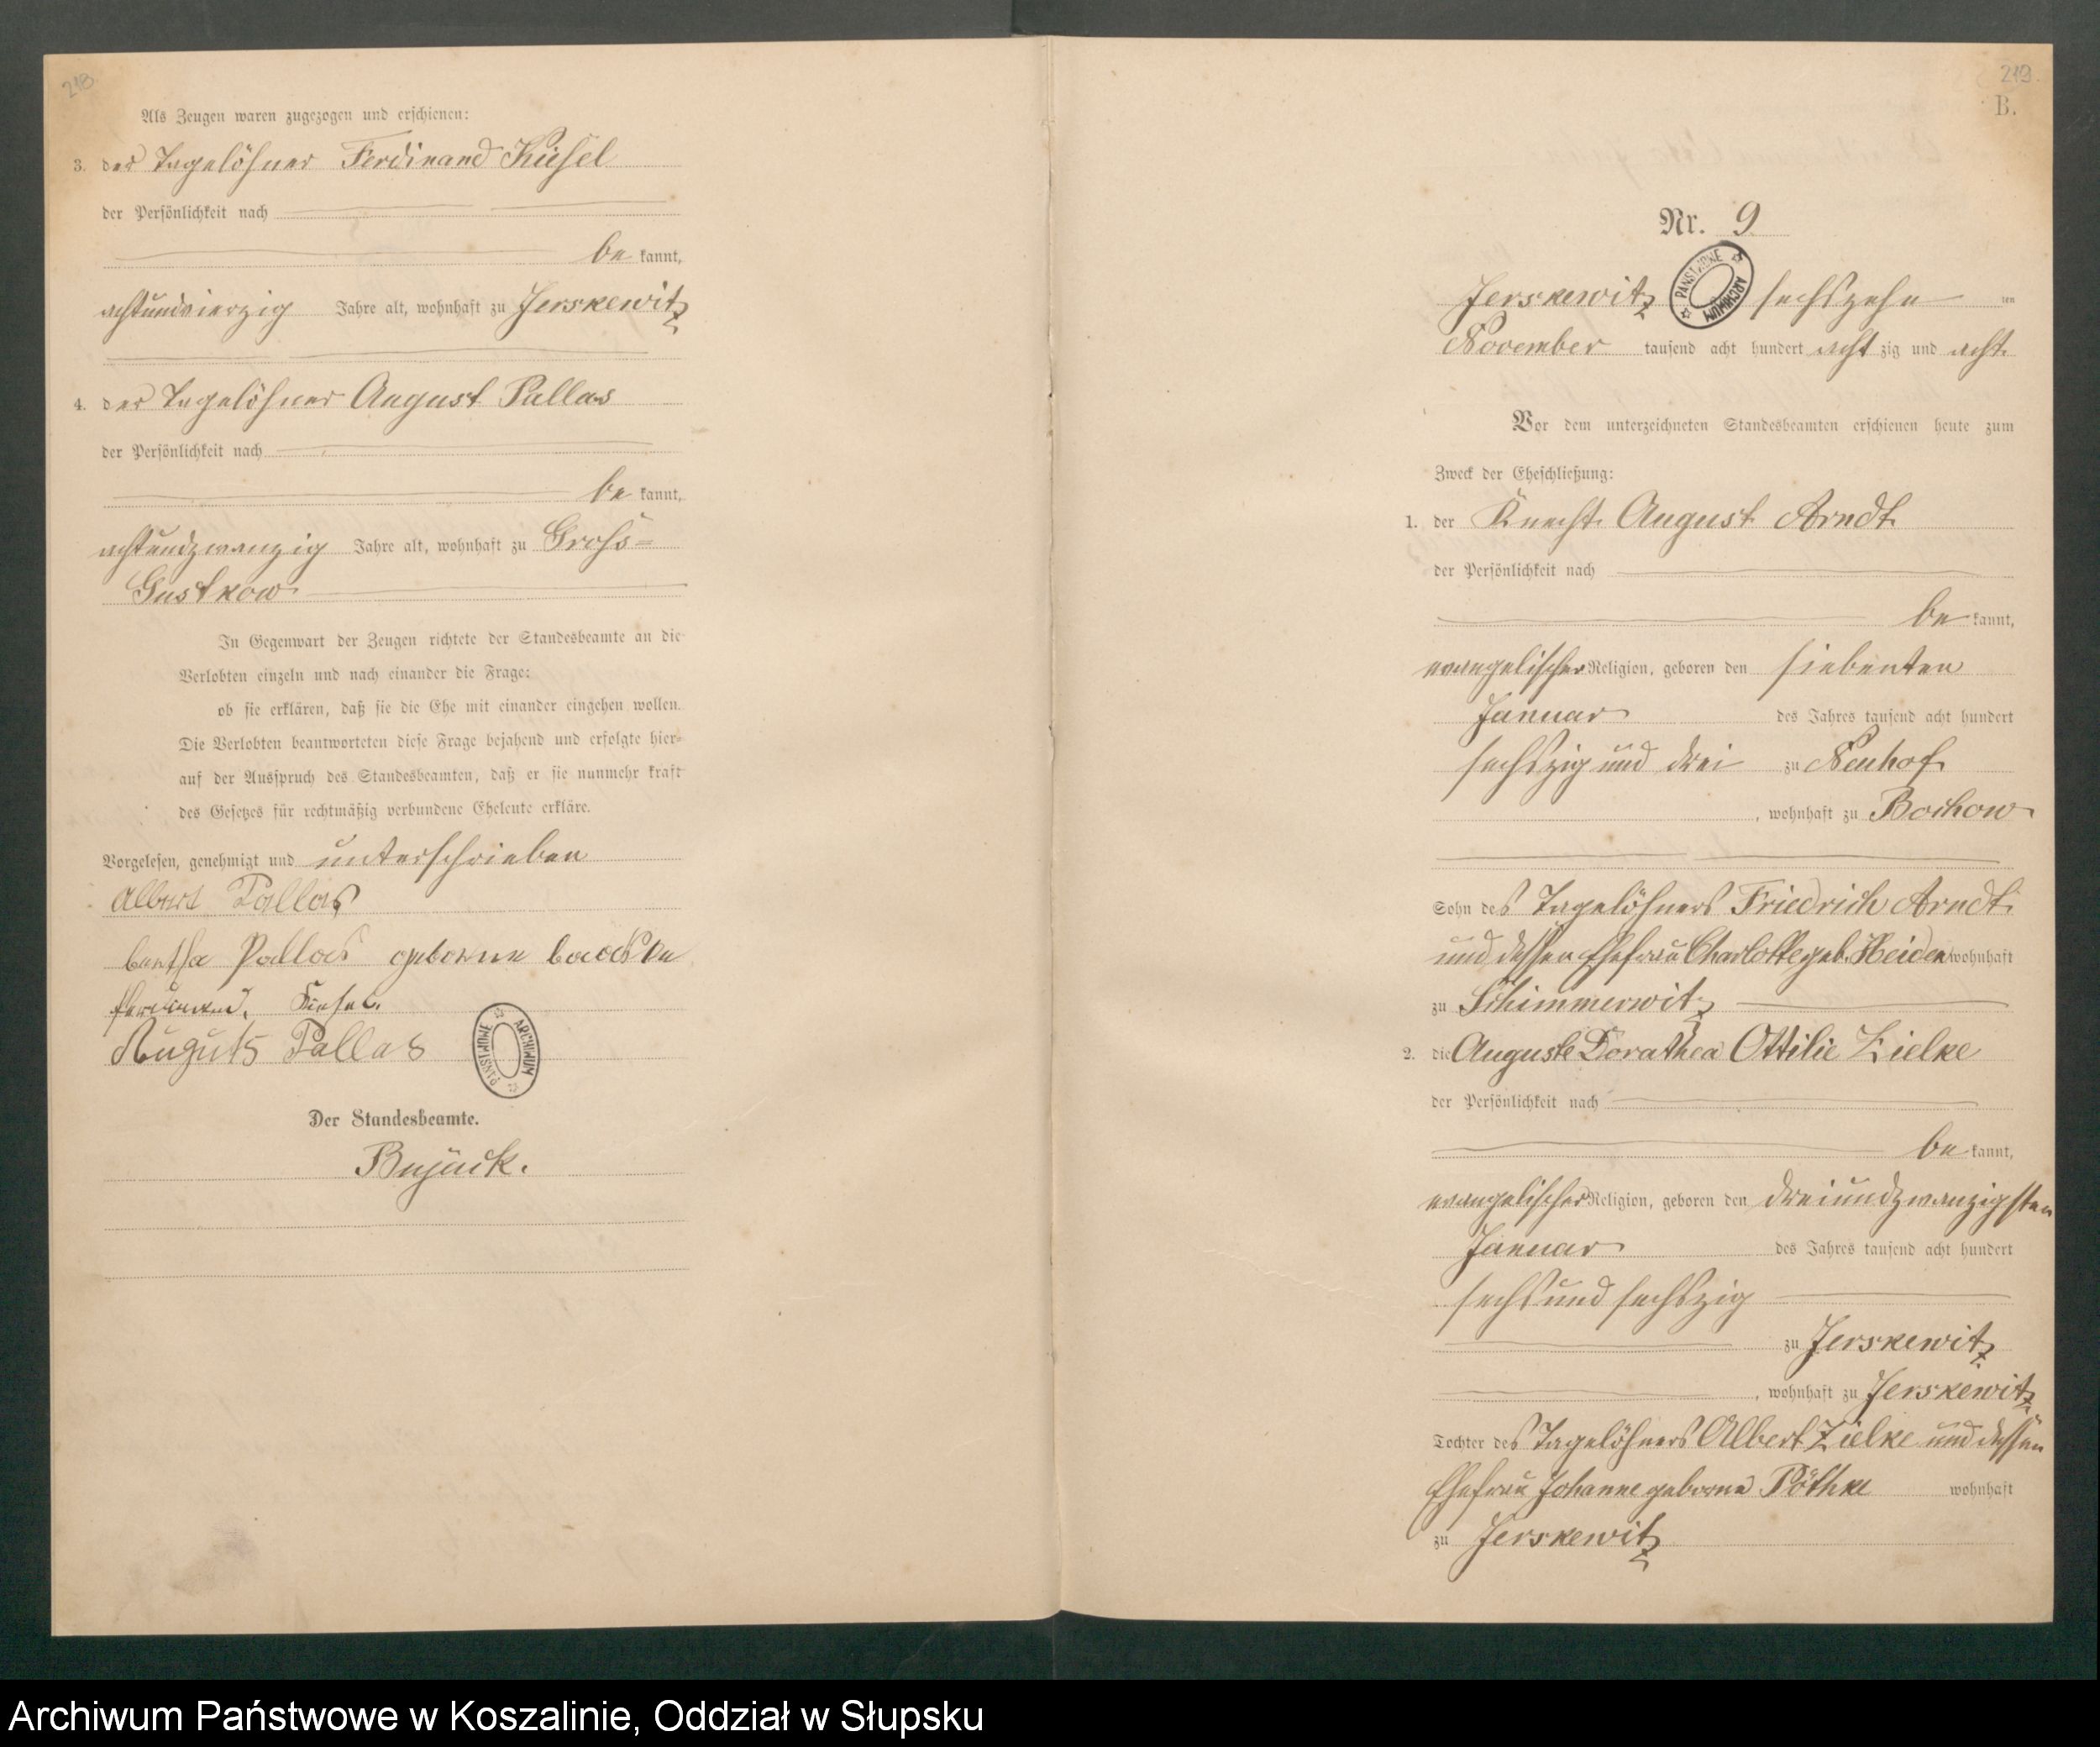 218.
Als Zeugen waren zugezogen und erschienen:
3. der Tagelöhner Ferdinand Kiesel
der Persönlichkeit nach
be kannt,
achtundvierzig Jahre alt, wohnhaft zu Jerskewitz
4. der Tagelöhner August Pallas
der Persönlichkeit nach
be kannt,
achtundzwanzig Jahre alt, wohnhaft zu Gross=
Gustkow
In Gegenwart der Zeugen richtete der Standesbeamte an die
Verlobten einzeln und nach einander die Frage:
ob sie erklären, daß sie die Ehe mit einander eingehen wollen.
Die Verlobten beantworteten diese Frage bejahend und erfolgte hier=
auf der Ausspruch des Standesbeamten, daß er sie nunmehr kraft
des Gesetzes für rechtmäßig verbundene Eheleute erkläre.
Vorgelesen, genehmigt und unterschrieben
Albert Pallas
Pallas geborene
Ferdinand Kiesel.
Auguts Pallas
ARCHIWUM PAŃSTWOWE
Der Standesbeamte.
Bujack.
219.
B.
Nr. 9
PAŃSTWOWE ARCHIWUM
Jerskewitz sechszehn ten
November tausend acht hundert acht zig und acht
Vor dem unterzeichneten Standesbeamten erschienen heute zum
Zweck der Eheschließung:
1. der Knecht August Arndt
der Persönlichkeit nach
be kannt,
evangelischer Religion, geboren den siebenten
Januar des Jahres tausend acht hundert
sechszig und drei zu Neuhof
, wohnhaft zu Bochow
Sohn des Tagelöhners Friedrich Arndt
und dessen Ehefrau Charlotte geb. Heiden wohnhaft
zu Schimmerwitz
2. die Auguste Dorathea Ottilie Zielke
der Persönlichkeit nach
be kannt,
evangelischer Religion, geboren den dreiundzwanzigsten
Januar des Jahres tausend acht hundert
sechs und sechszig
zu Jerskewitz
, wohnhaft zu Jerskewitz
Tochter des Tagelöhners Albert Zielke und dessen
Ehefrau Johanne geborne Pöthke wohnhaft
zu Jerskewitz
Archiwum Państwowe w Koszalinie, Oddział w Słupsku